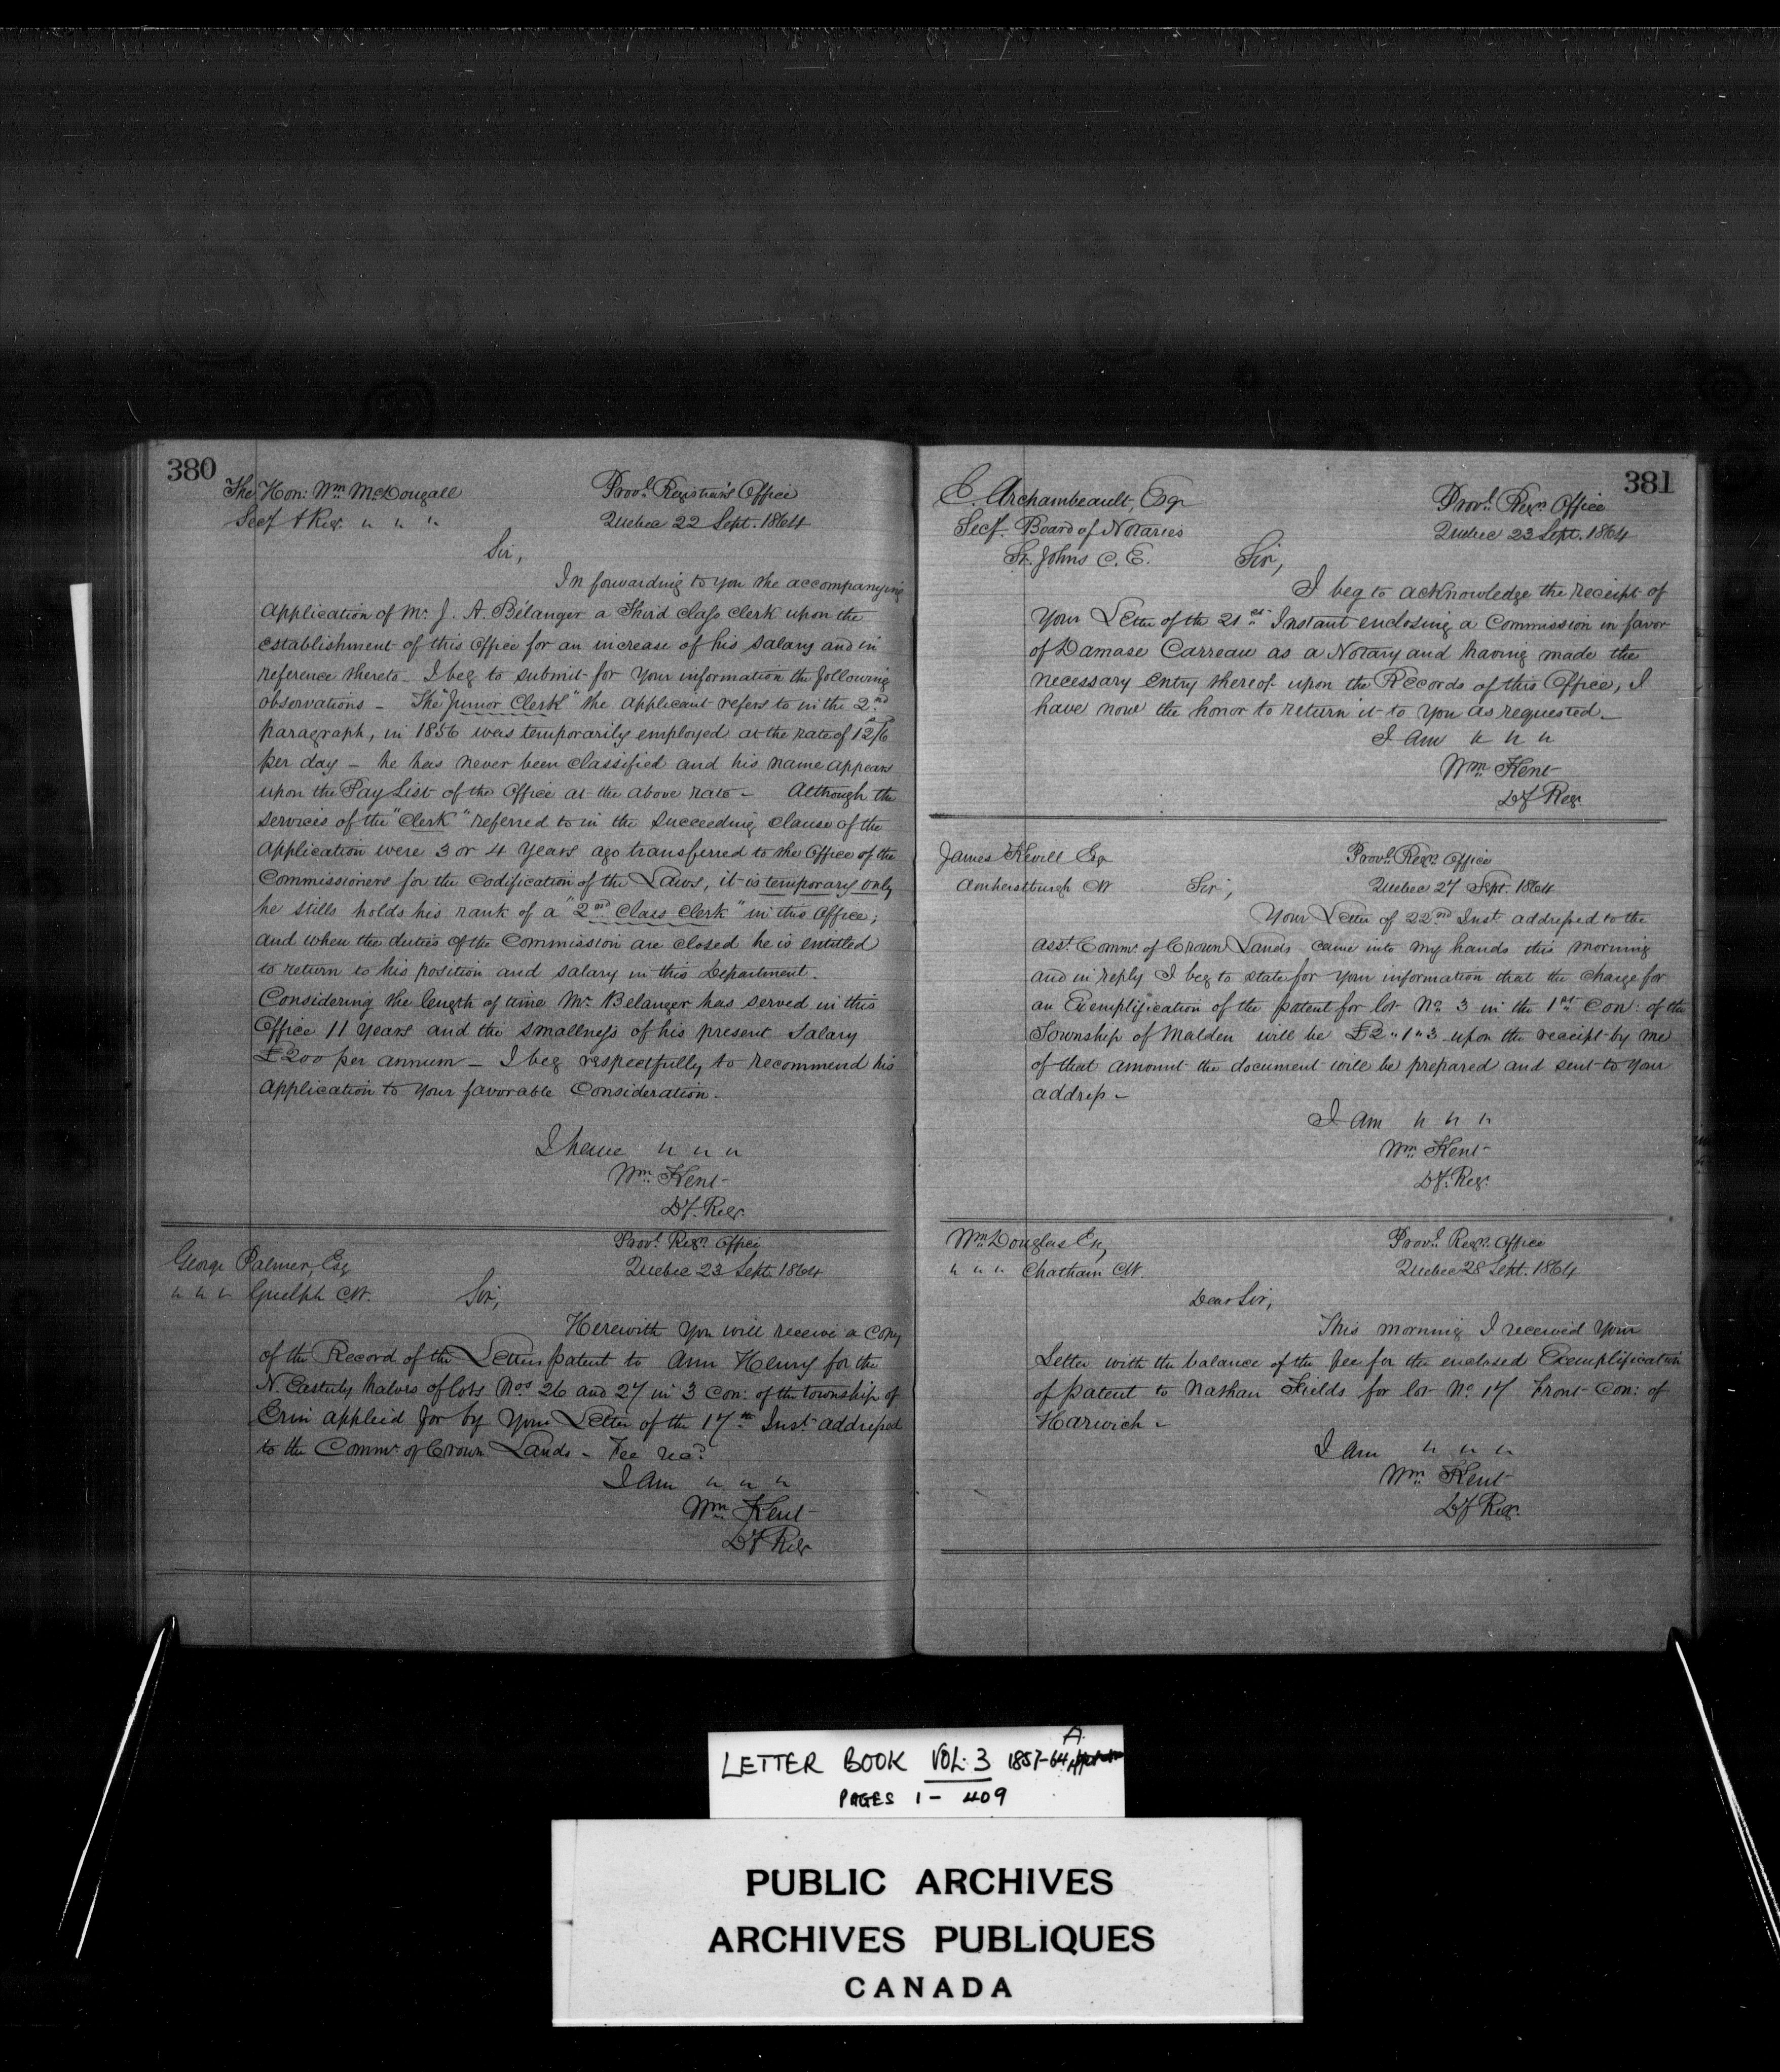 380
The Hon: Wm McDougall
Secy & Reg. " " "
Provl Registrar's Office
Quebec 22 Sept. 1864
Sir,
In forwarding to you the accompanying
application of Mr J. A. Bélanger a Third class clerk upon the
establishment of this Office for an increase of his salary and in
reference thereto I beg to submit for your information the following
observations – The "Junior Clerk" the applicant refers to in the 2nd
paragraph, in 1856 was temporarily employed at the rate of 12/6
per day – he has never been classified and his name appears
upon the Pay List of the Office at the above rate – Although the
services of the "Clerk" referred to in the succeeding clause of the
application were 3 or 4 years ago transferred to the Office of the
Commissioners for the Codification of the Laws, it is temporary only
he stills holds his rank of a "2nd Class Clerk" in this Office;
and when the duties of the Commission are closed he is entitled
to return to his position and salary in this Department.
Considering the length of time Mr Belanger has served in this
Office 11 years and the smallness of his present Salary
£200 per annum – I beg respectfully to recommend his
application to your favorable Consideration.
I have " " "
Wm Kent
Dy. Regr.
George Palmer, Esq
" " " Guelph CW.
Provl Regrs Office
Quebec 23 Sept. 1864
Sir,
Herewith you will receive a Copy
of the Record of the Letters patent to Ann Henry for the
N. Easterly halves of lots Nos 26 and 27 in 3 Con: of the township of
Erin applied for by your Letter of the 17th Inst addressed
to the Commr of Crown Lands – Fee recd
I am " " "
Wm Kent
Dy Regr
381
C. Archambeault, Esqr
Secy. Board of Notaries
St. Johns C. E.
Provl Regrs Office
Quebec 23 Sept. 1864
Sir,
I beg to acknowledge the receipt of
your Letter of the 21st Instant enclosing a Commission in favor
of Damase Carreau as a Notary and having made the
necessary entry thereof upon the Records of this Office, I
have now the honor to return it to you as requested –
I am " " "
Wm Kent
Dy Regr
James Kevill Esqr
Amherstburgh CW
Provl Regrs Office
Quebec 27 Sept. 1864
Sir,
Your Letter of 22nd Inst addressed to the
asst Commr of Crown Lands came into my hands this morning
and in reply I beg to state for your information that the charge for
an Exemplification of the patent for lot No 3 in the 1st Con: of the
Township of Malden will be £2 " 1 " 3 upon the receipt by me
of that amount the document will be prepared and sent to your
address –
I am " " "
Wm Kent
Dy. Regr.
Wm Douglas Esq,
" " " Chatham CW.
Provl Regrs Office
Quebec 28 Sept. 1864
Dear Sir,
This morning I received your
Letter with the balance of the fee for the enclosed Exemplification
of patent to Nathan Fields for lot No 17 Front Con: of
Harwich –
I am " " "
Wm Kent
Dy Regr.
LETTER BOOK VOL. 3 1857-64 A
PAGES 1 – 409
PUBLIC ARCHIVES
ARCHIVES PUBLIQUES
CANADA